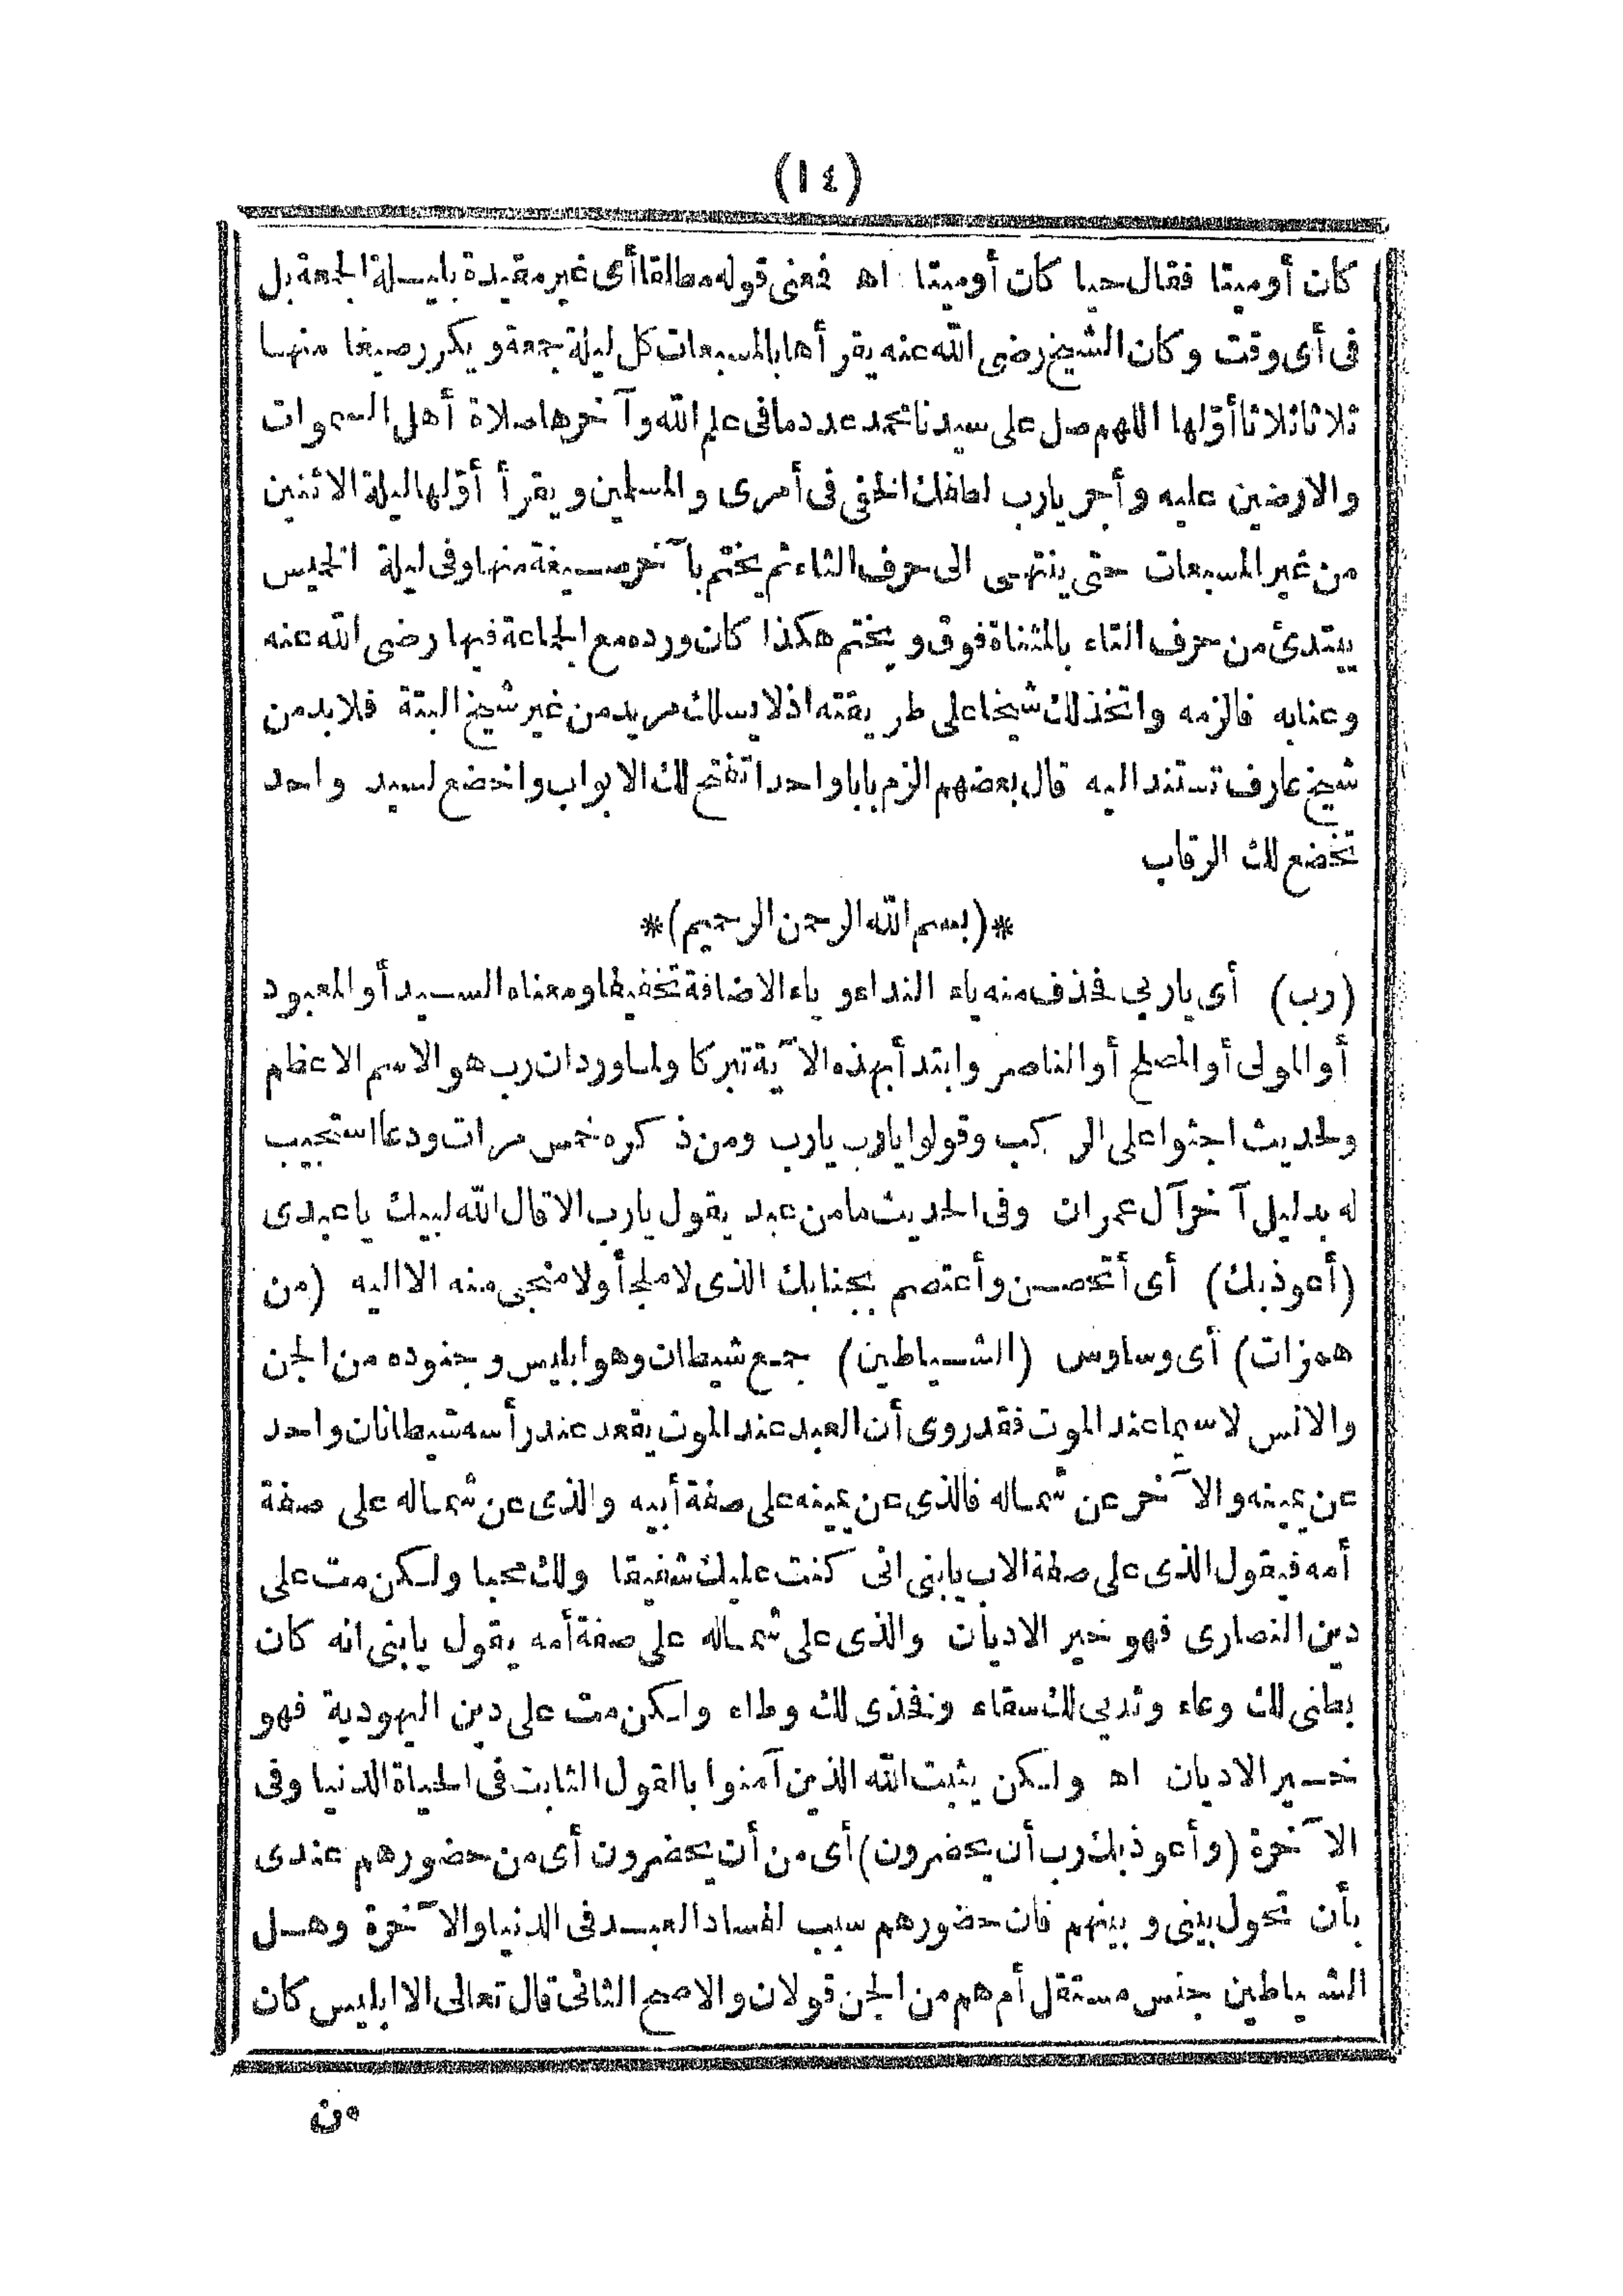 (١٤)
كان أو ميتا فقال حيا كان أو ميتا اه فمعنى قوله مطلقا أى غير مقيدة بليلة الجمعة بل
فى أى وقت وكان الشيخ رضى الله عنه يقرأها بالمسبعات كل ليلة جمعة ويكرر صيغا منها
ثلاثا ثلاثا أوّلها اللهم صل على سيدنا محمد عدد ما فى علم الله وآخرها صلاة أهل السموات
والارضين عليه وأجر يا رب لطفك الخفى فى أمرى والمسلمين ويقرأ أوّلها ليلة الاثنين
من غير المسبعات حتى ينتهى الى حرف الثاء ثم يختم بآخر صيغة منها وفى ليلة الخميس
يبتدئ من حرف التاء بالمثناة فوق ويختم هكذا كان ورده مع الجماعة فيها رضى الله عنه
وعنا به فالزمه واتخذ لك شيخا على طريقته اذ لا يسلك مريد من غير شيخ البتة فلا بد من
شيخ عارف تستند اليه قال بعضهم الزم بابا واحدا تفتح لك الابواب واخضع لسيد واحد
تخضع لك الرقاب
*(بسم الله الرحمن الرحيم)*
(رب) أى يا ربى فحذف منه ياء النداء وياء الاضافة تخفيفا ومعناه السيد أو المعبود
أو المولى أو المصلح أو الناصر وابتدأ بهذه الآية تبركا ولما ورد ان رب هو الاسم الاعظم
ولحديث اجثوا على الركب وقولوا يا رب يا رب ومن ذكره خمس مرات ودعا استجيب
له بدليل آخر آل عمران وفى الحديث ما من عبد يقول يا رب الا قال الله لبيك يا عبدى
(أعوذ بك) أى أتحصن وأعتصم بجنابك الذى لا ملجأ ولا منجى منه الا اليه (من
همزات) أى وساوس (الشياطين) جمع شيطان وهو ابليس وجنوده من الجن
والانس لا سيما عند الموت فقد روى أن العبد عند الموت يقعد عند رأسه شيطانان واحد
عن يمينه والآخر عن شماله فالذى عن يمينه على صفة أبيه والذى عن شماله على صفة
أمه فيقول الذى على صفة الاب يا بنى انى كنت عليك شفيقا ولك محبا ولكن مت على
دين النصارى فهو خير الاديان والذى على شماله على صفة أمه يقول يا بنى انه كان
بطنى لك وعاء وثديى لك سقاء وفخذى لك وطاء ولكن مت على دين اليهودية فهو
خير الاديان اه ولكن يثبت الله الذين آمنوا بالقول الثابت فى الحياة الدنيا وفى
الآخرة (وأعوذ بك رب أن يحضرون) أى من أن يحضرون أى من حضورهم عندى
بأن تحول بينى وبينهم فان حضورهم سبب لفساد العبد فى الدنيا والآخرة وهل
الشياطين جنس مستقل أم هم من الجن قولان والاصح الثانى قال تعالى الا ابليس كان
من